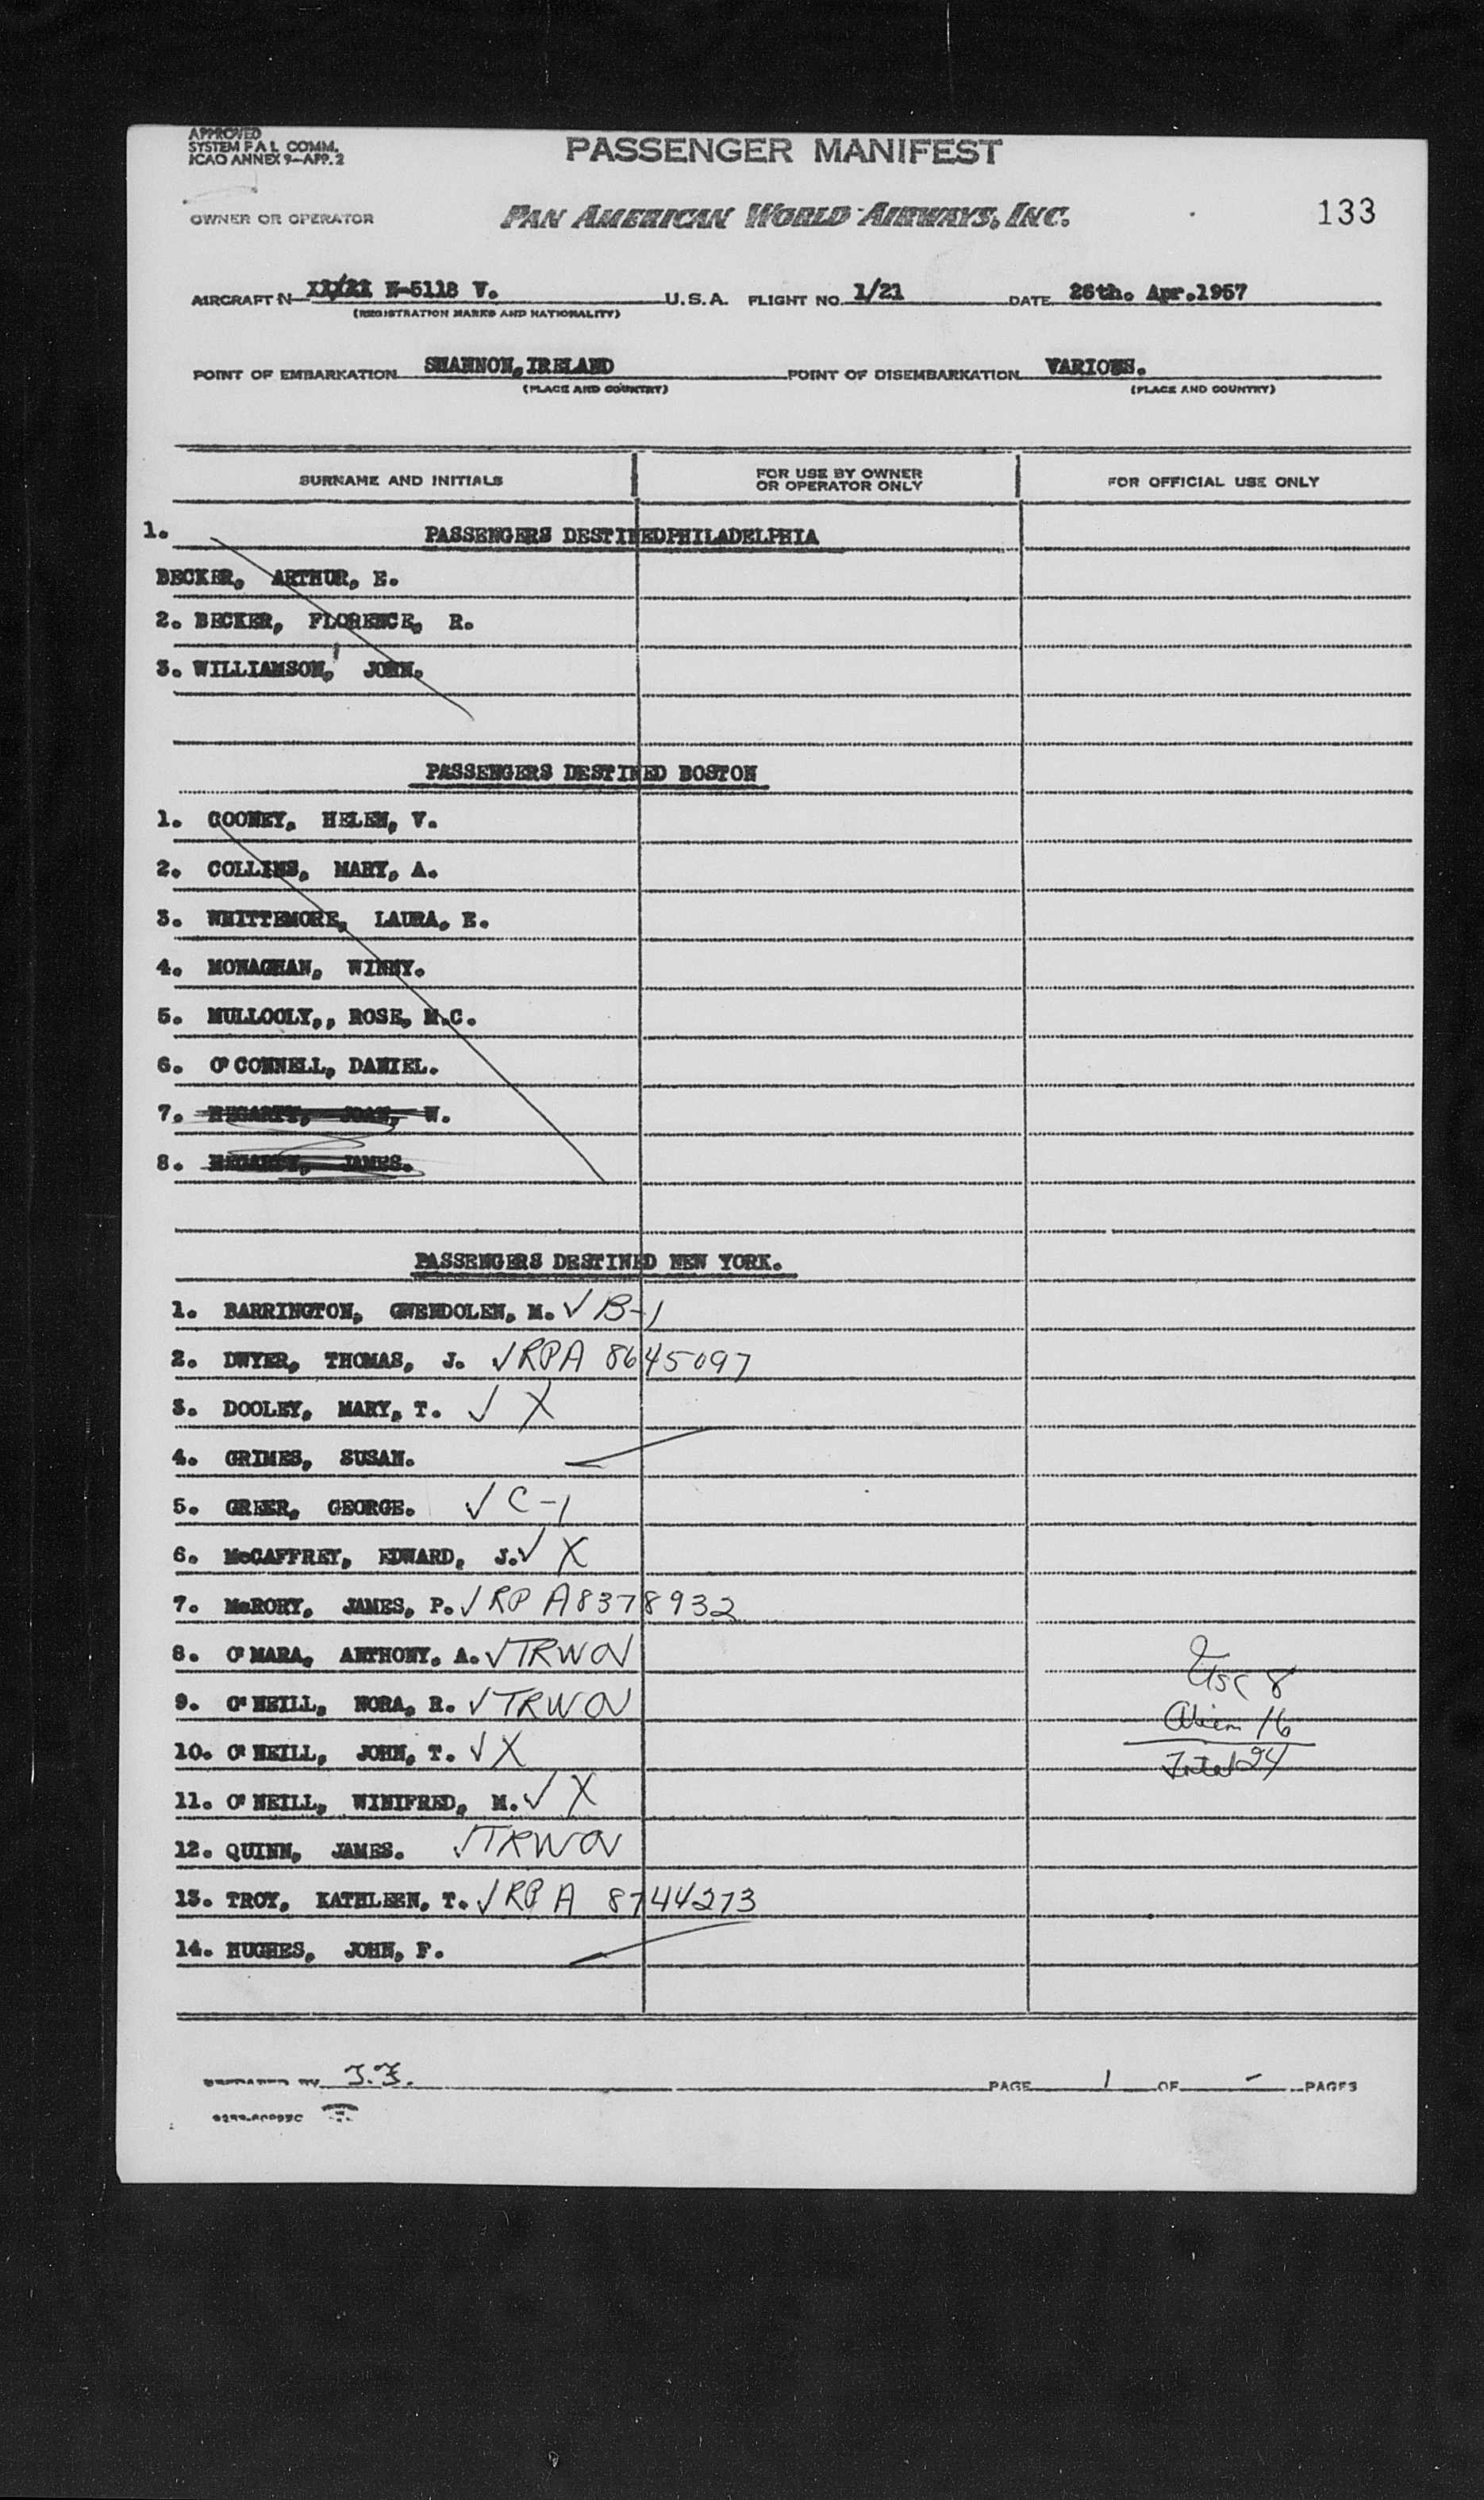 APPROVED
SYSTEM F A L COMM.
ICAO ANNEX 9-APP. 2
PASSENGER MANIFEST
OWNER OR OPERATOR PAN AMERICAN WORLD AIRWAYS, INC. 133
AIRCRAFT N N-5118 V. U.S.A. FLIGHT NO. 1/21 DATE 26th. Apr.1957
(REGISTRATION MARKS AND NATIONALITY)
POINT OF EMBARKATION SHANNON, IRELAND POINT OF DISEMBARKATION VARIOUS.
(PLACE AND COUNTRY) (PLACE AND COUNTRY)
SURNAME AND INITIALS FOR USE BY OWNER OR OPERATOR ONLY FOR OFFICIAL USE ONLY
1. PASSENGERS DESTINEDPHILADELPHIA
BECKER, ARTHUR, E.
2. BECKER, FLORENCE, R.
3. WILLIAMSON, JOHN.
PASSENGERS DESTINED BOSTON
1. COONEY, HELEN, V.
2. COLLINS, MARY, A.
3. WHITTEMORE, LAURA, E.
4. MONAGHAN, WINNY.
5. MULLOOLY,, ROSE, M.C.
6. O'CONNELL, DANIEL.
7. HEGARTY, JOAN, W.
8. HEGARTY, JAMES.
PASSENGERS DESTINED NEW YORK.
1. BARRINGTON, GWENDOLEN, M. ✓ B-1
2. DWYER, THOMAS, J. ✓ RPA 8645097
3. DOOLEY, MARY, T. ✓ X
4. GRIMES, SUSAN.
5. GREER, GEORGE. ✓ C-1
6. McCAFFREY, EDWARD, J. ✓ X
7. McRORY, JAMES, P. ✓ RP A8378932
8. O'MARA, ANTHONY, A. ✓ TRWOV
9. O'NEILL, NORA, R. ✓ TRWOV
10. O'NEILL, JOHN, T. ✓ X
11. O'NEILL, WINIFRED, M. ✓ X
12. QUINN, JAMES. ✓ TRWOV
13. TROY, KATHLEEN, T. ✓ RP A 8744273
14. HUGHES, JOHN, F.
USC 8
Alien 16
Total 24
PREPARED BY J.F. PAGE 1 OF - PAGES